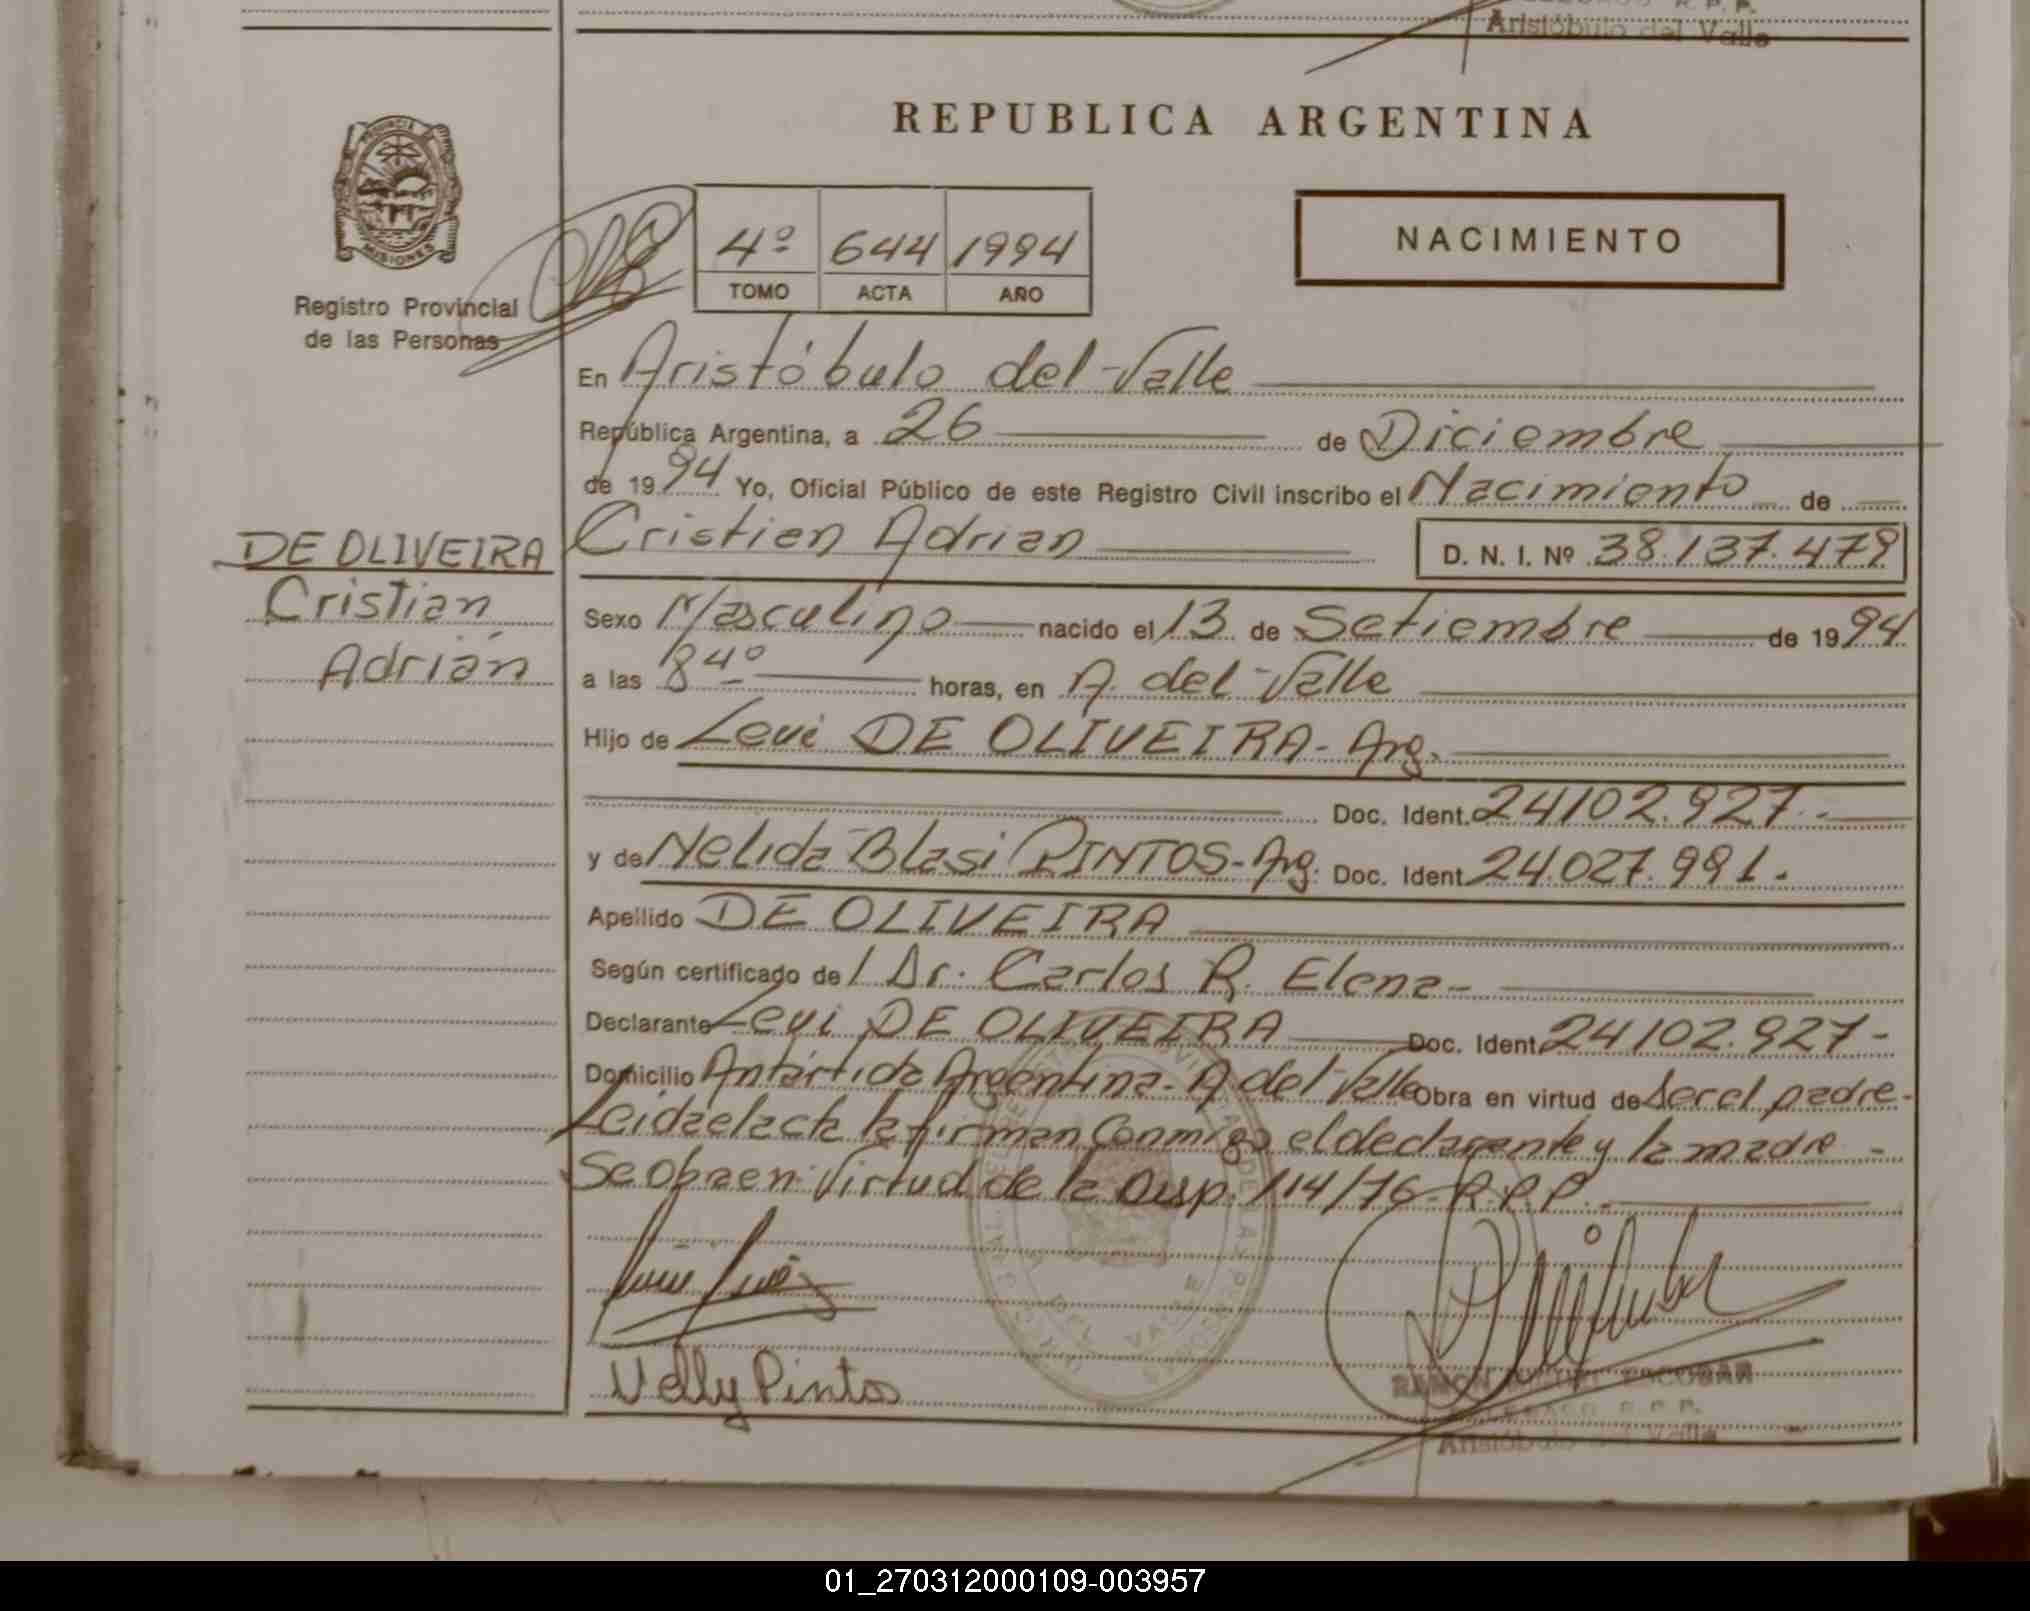 Aristóbulo del Valle
REPUBLICA ARGENTINA
PROVINCIA
MISIONES
Registro Provincial
de las Personas
4º 644 1994
TOMO ACTA AÑO
NACIMIENTO
En Aristóbulo del Valle
República Argentina, a 26 de Diciembre
de 1994 Yo, Oficial Público de este Registro Civil inscribo el Nacimiento de
DE OLIVEIRA
Cristian
Adrián
Cristian Adrian D. N. I. Nº 38.137.479
Sexo Masculino nacido el 13 de Setiembre de 1994
a las 8 40 horas, en A. del Valle
Hijo de Levi DE OLIVEIRA - Arg.
Doc. Ident. 24102.927.-
y de Nelida Blasi PINTOS - Arg. Doc. Ident 24.027.991.
Apellido DE OLIVEIRA
Según certificado de l Dr. Carlos R. Elena -
Declarante Levi DE OLIVEIRA Doc. Ident. 24102.927-
Domicilio Antártida Argentina - A. del Valle Obra en virtud de ser el padre -
Leida el acta la firman conmigo el declarante y la madre -
Se obra en virtud de la Disp. 114/76 - R.P.P. -
DEL VALLE
Velly Pintos
RAMON ESCOBAR
R.P.P.
Aristóbulo del Valle
01_270312000109-003957